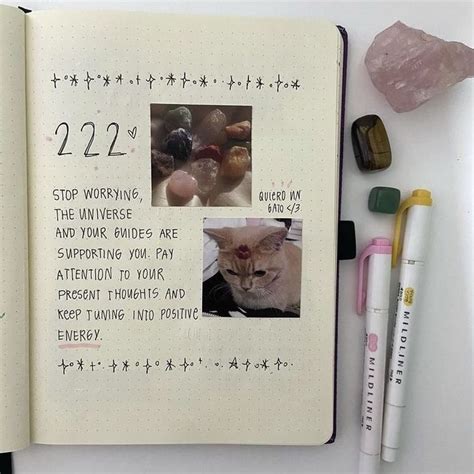 222
STOP WORRYING,
THE UNIVERSE
AND YOUR GUIDES ARE
SUPPORTING YOU. PAY
ATTENTION TO YOUR
PRESENT THOUGHTS AND
KEEP TUNING INTO POSITIVE
ENERGY.
QUIERO UN
GATO </3
MILDLINER
MILDLINER